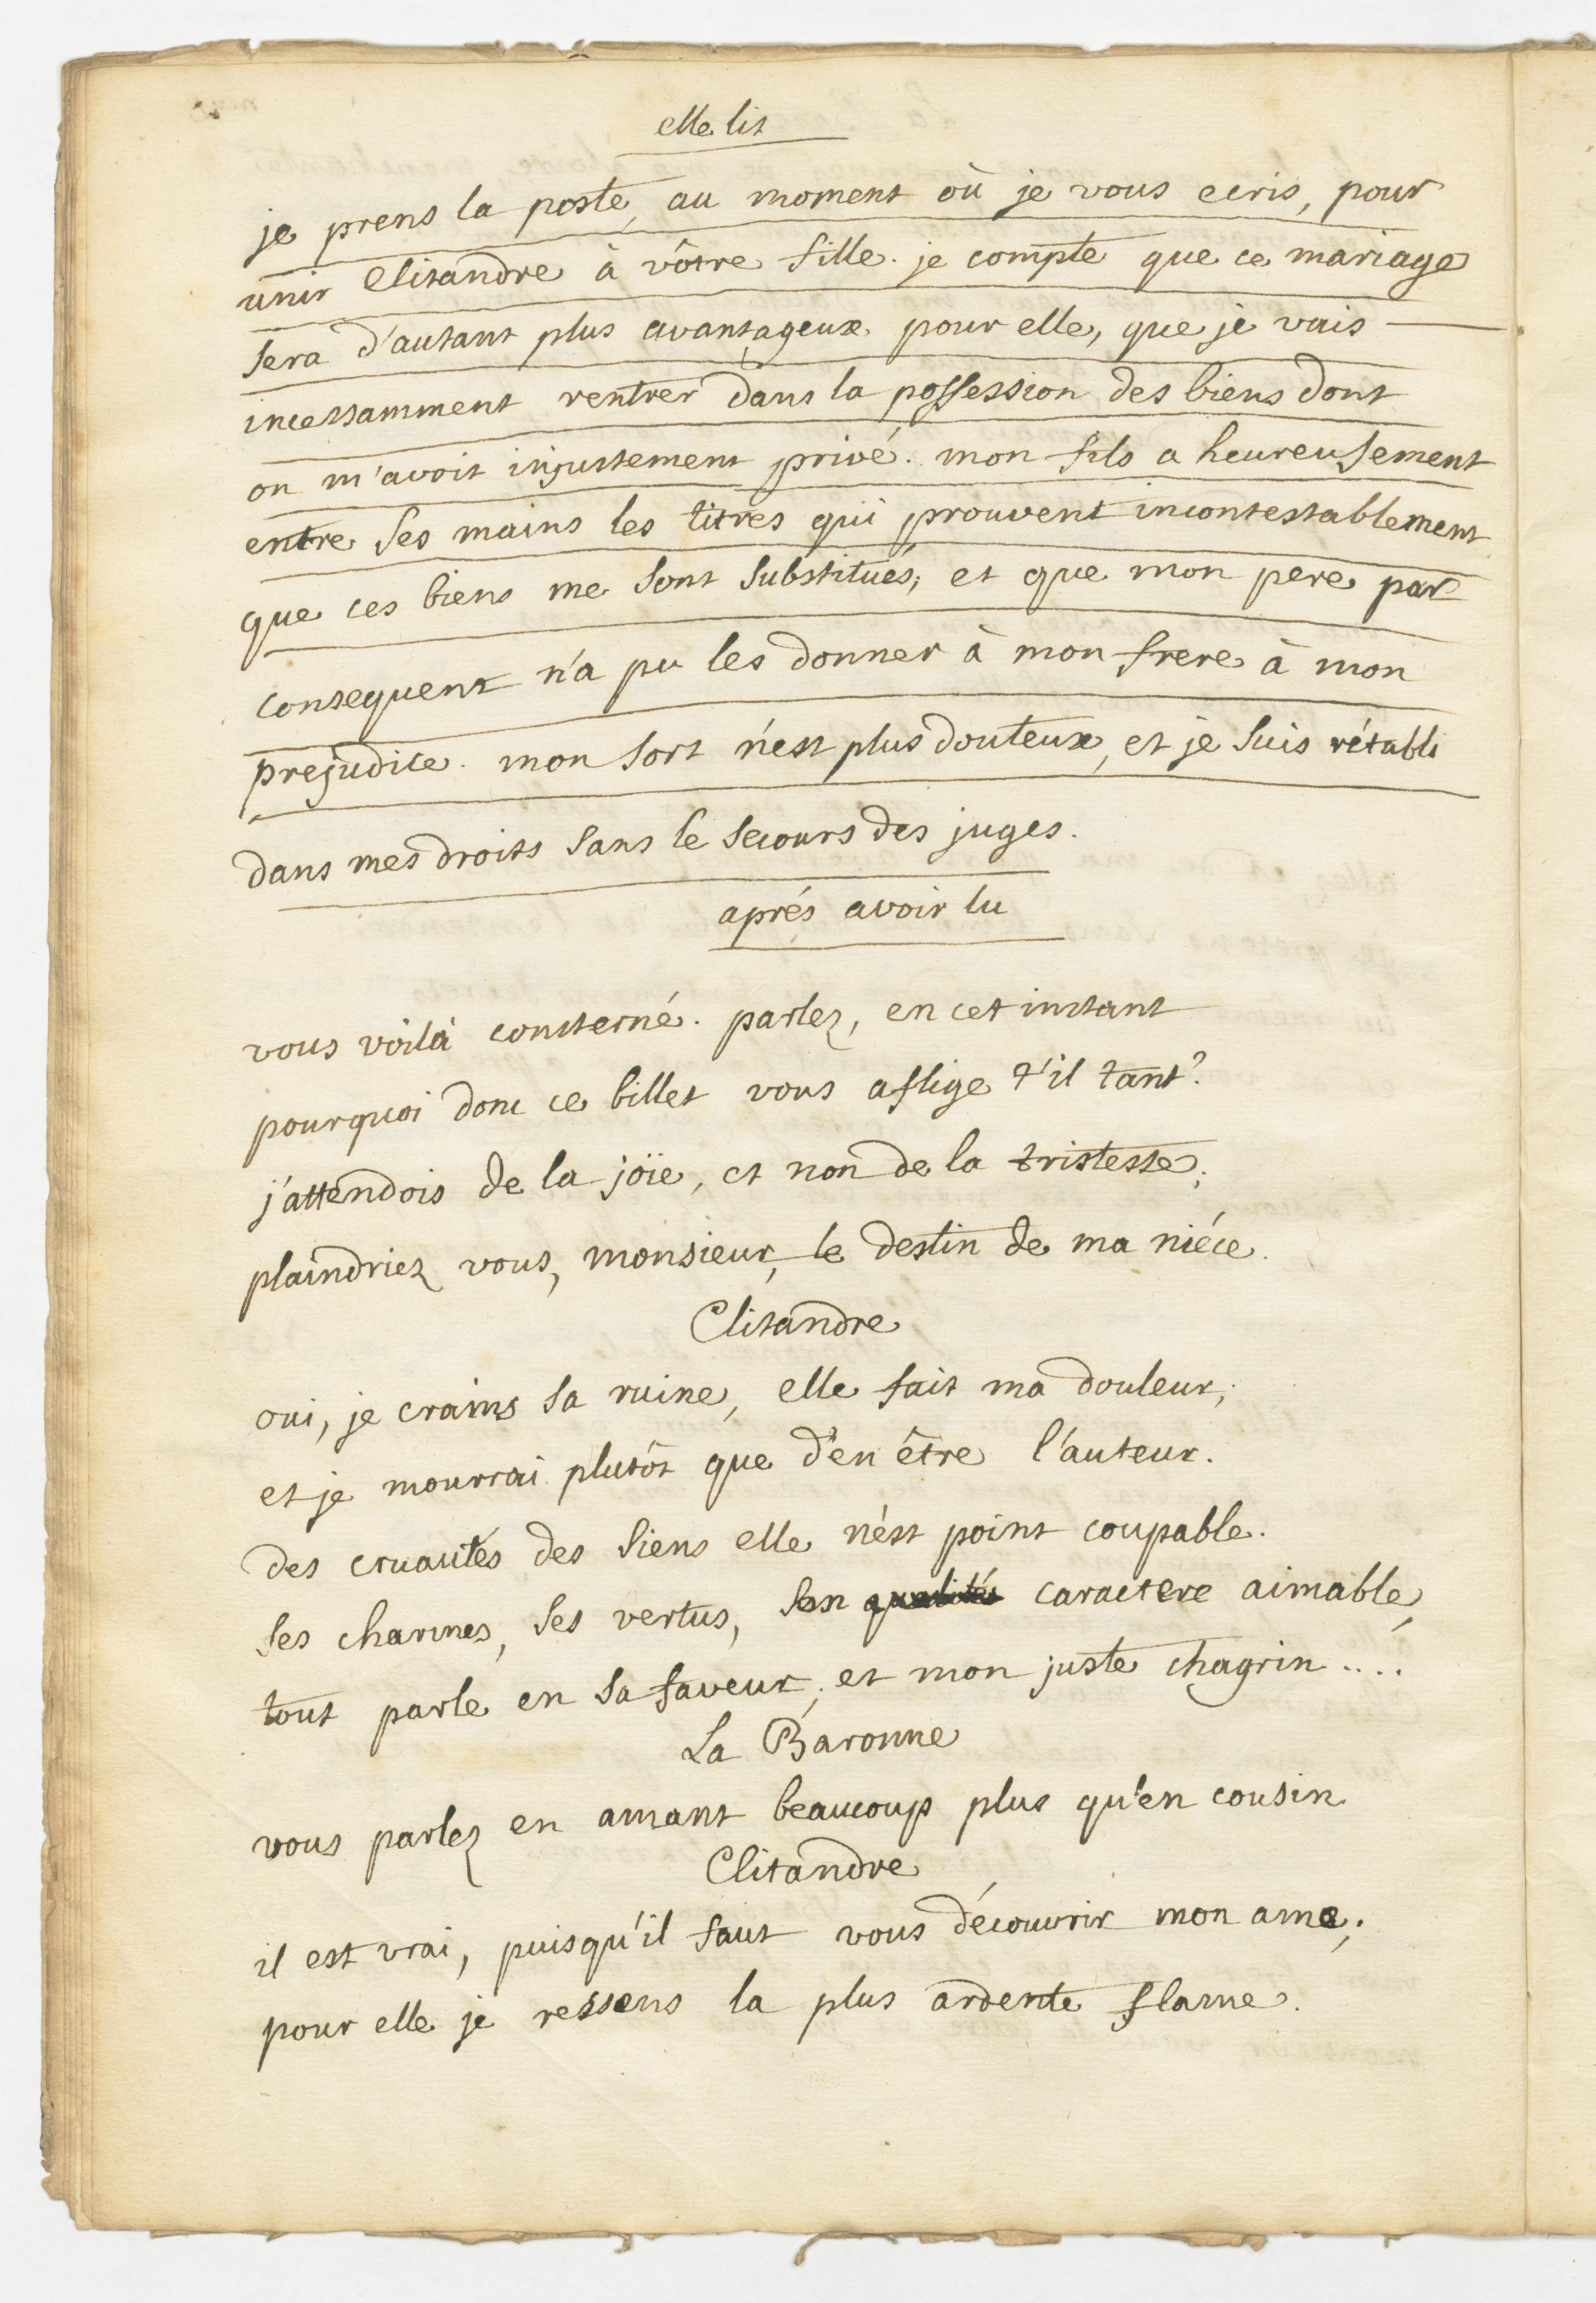 elle lit
je prens la poste, au moment où je vous ecris, pour
unir Clitandre à vôtre fille. je compte que ce mariage
sera d'autant plus avantageux pour elle, que je vais
incessamment rentrer dans la possession des biens dont
on m'avoit injustement privé. mon fils a heureusement
entre ses mains les titres qui prouvent incontestablement
que ces biens me sont substitués; et que mon pere par
consequent n'a pu les donner à mon frere à mon
prejudice. mon sort n'est plus douteux, et je suis rétabli
dans mes droits sans le secours des juges.
aprés avoir lu
vous voilà consterné. parlez, en cet instant
pourquoi donc ce billet vous aflige t'il tant?
j'attendois de la joïe, et non de la tristesse;
plaindriez vous, monsieur, le destin de ma niéce.
Clitandre
oui, je crains sa ruine, elle fait ma douleur;
et je mourrai plutôt que d'en être l'auteur.
des cruautés des siens elle n'est point coupable.
ses charmes, ses vertus, son qualités caractere aimable,
tout parle en sa faveur; et mon juste chagrin....
La Baronne
vous parlez en amant beaucoup plus qu'en cousin
Clitandre
il est vrai, puisqu'il faut vous découvrir mon ame;
pour elle je ressens la plus ardente flame.